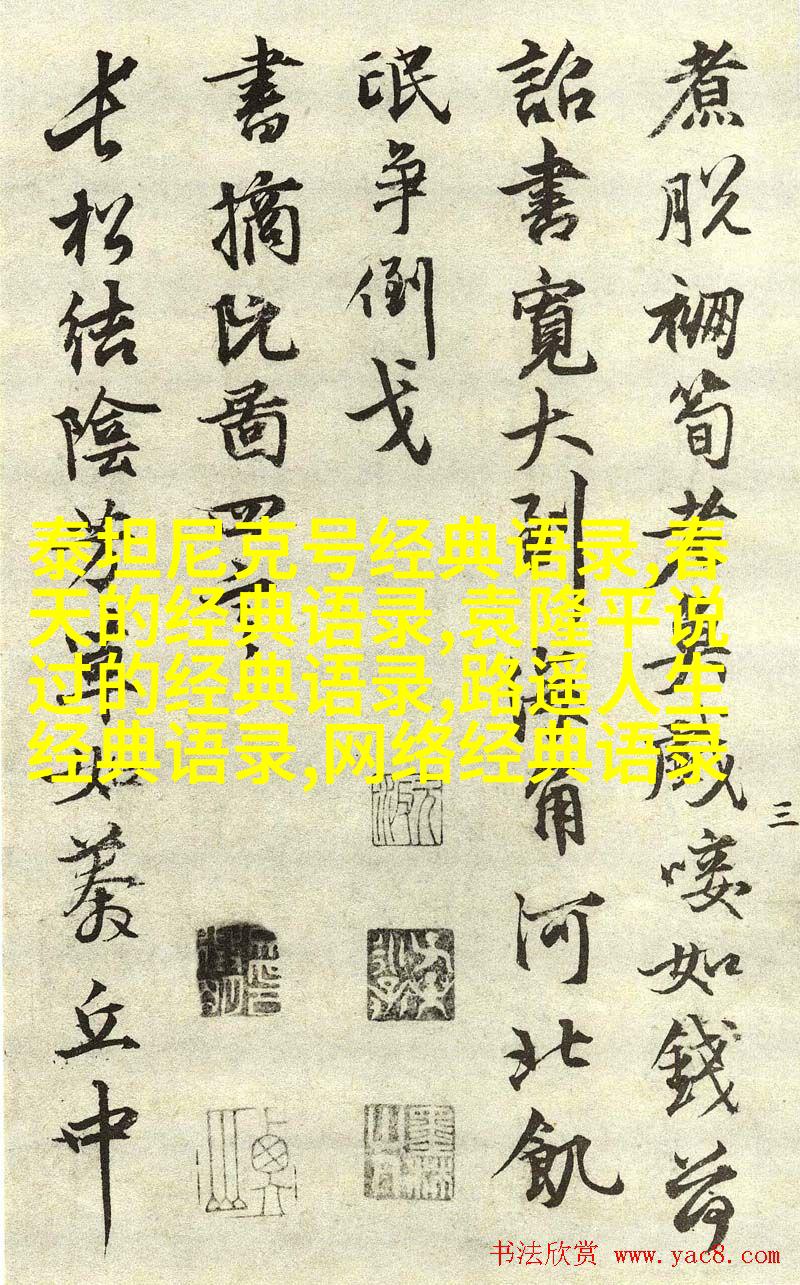 煮脱筍老如錢荷
詔書寬大到角河北飢
氓争倒戈
書摘阮啚四
長松结陰芳草如丘中
泰坦尼克号经典语录,春
天的经典语录,袁隆平说
过的经典语录,路遥人生
经典语录,网络经典语录
三
书法欣赏 www.yac8.com